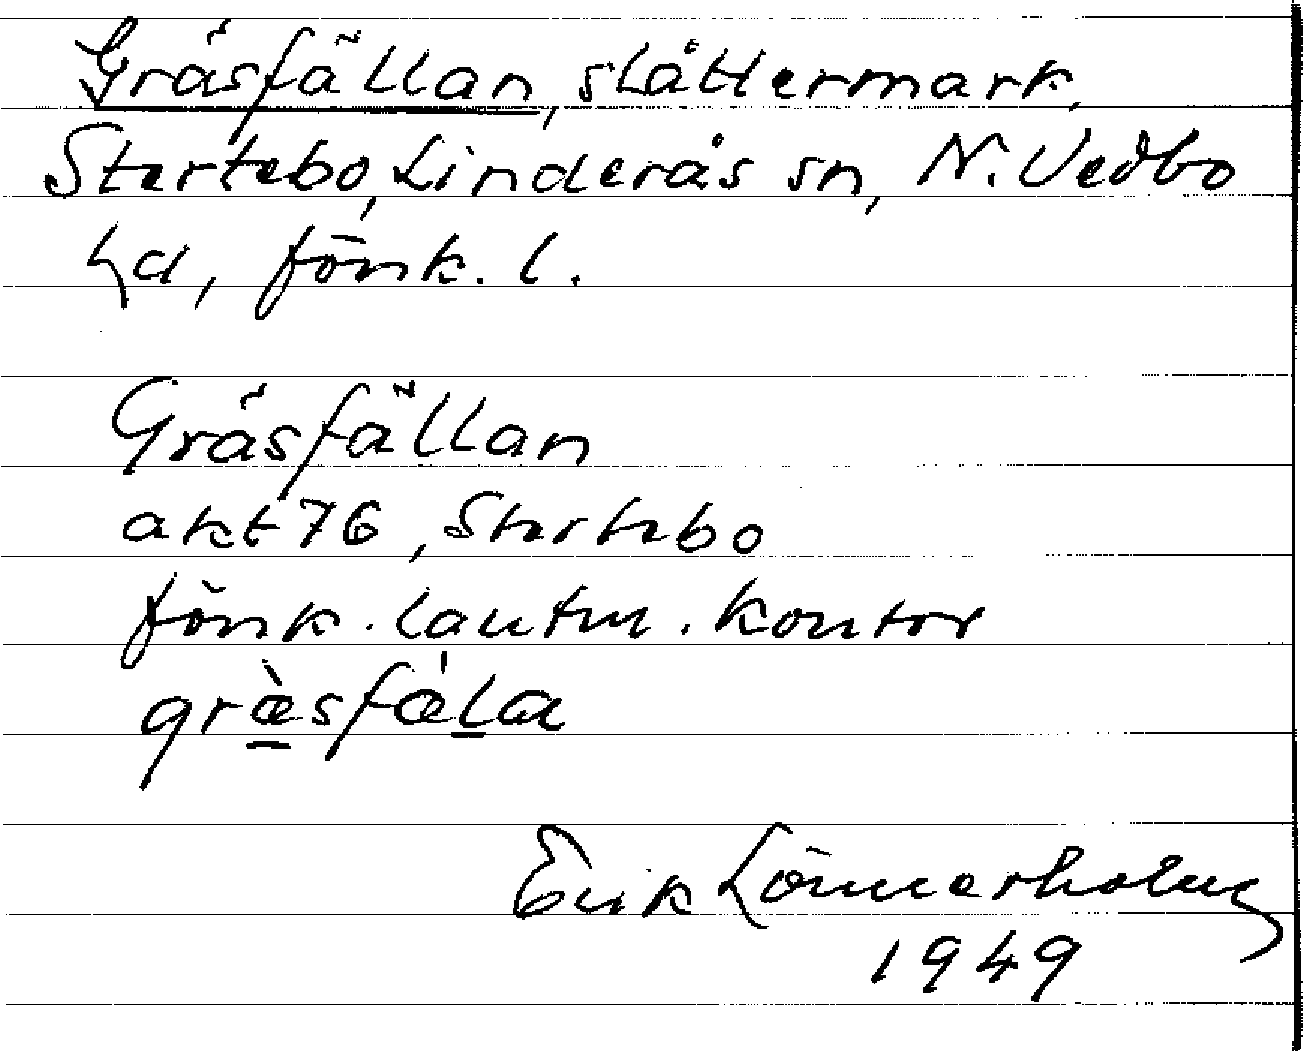 Gräsfällan, slåttermark,
Stertebo, Linderås sn, N. Vedbo
hd, Jönk. l.
Gräsfällan
akt 76, Stertebo
Jönk. lantm. kontor
græ̀sfæ̀la
Erik Lönnerholm
1949